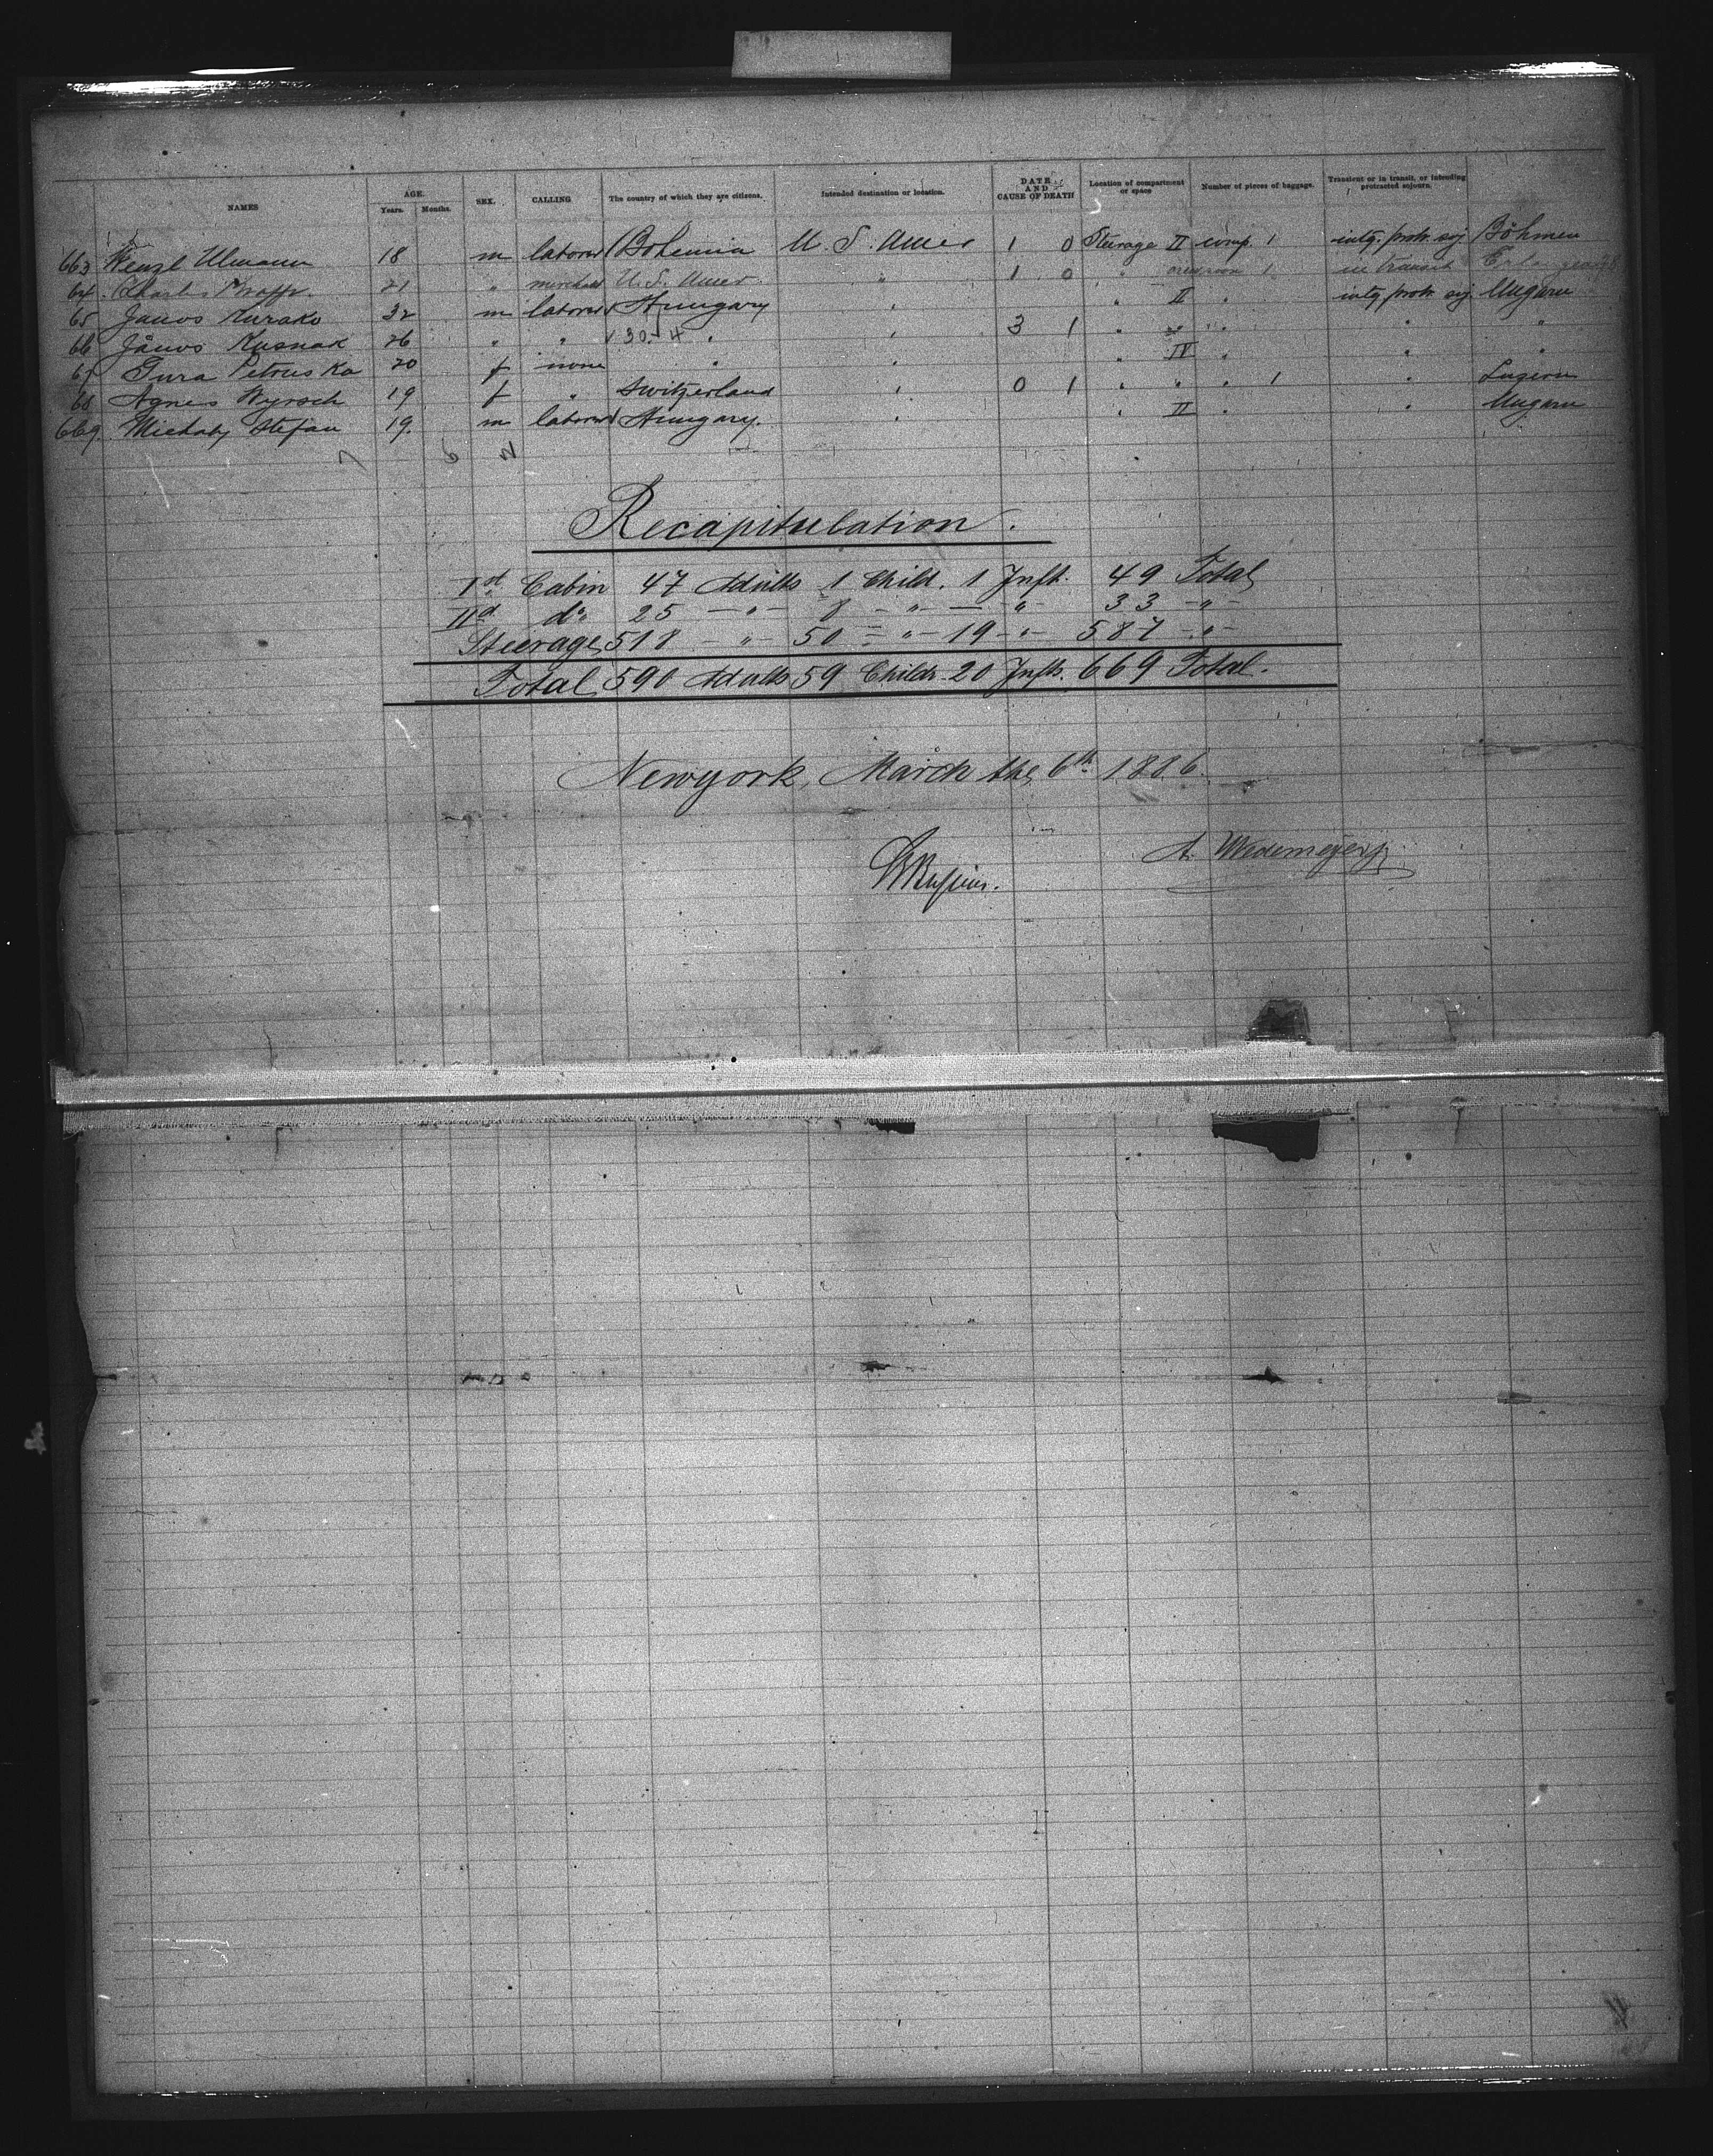 NAMES AGE. Years. Months. SEX. CALLING The country of which they are citizens. Intended destination or location. DATE AND CAUSE OF DEATH Location of compartment or space Number of pieces of baggage. Transient or in transit, or intending protracted sojourn.
663 Wenzl Ulmann 18 m laborer Bohemia U. S. Amer 1 0 Steerage II comp. 1 intg. protr. soj Böhmen
64. Charles 21 " merchant U. S. Amer. " 1 0 " 1 in transit
65 Janos Kurako 32 m laborer Hungary " " II " intg protr soj Ungarn
66 János Kusnak 26 " " 30.-4 " " 3 1 " " " " "
67 Petruska 20 f none " " " IV " " "
68 Agnes Wyrsch 19 f " Switzerland " 0 1 " " " 1 " Luzern
669. Michaly Stefan 19. m laborer Hungary. " " II " " Ungarn
Recapitulation.
Ist Cabin 47 Adults 1 Child. 1 Inft. 49 Total
IId do 25 — " — 8 — " — — " — 33 — " —
Steerage 518 — " — 50 — " — 19 — " — 587 — " —
Total 590 Adults 59 Childr. 20 Infts. 669 Total.
Newyork, March the 6th 1886.
A. Wedemeyer